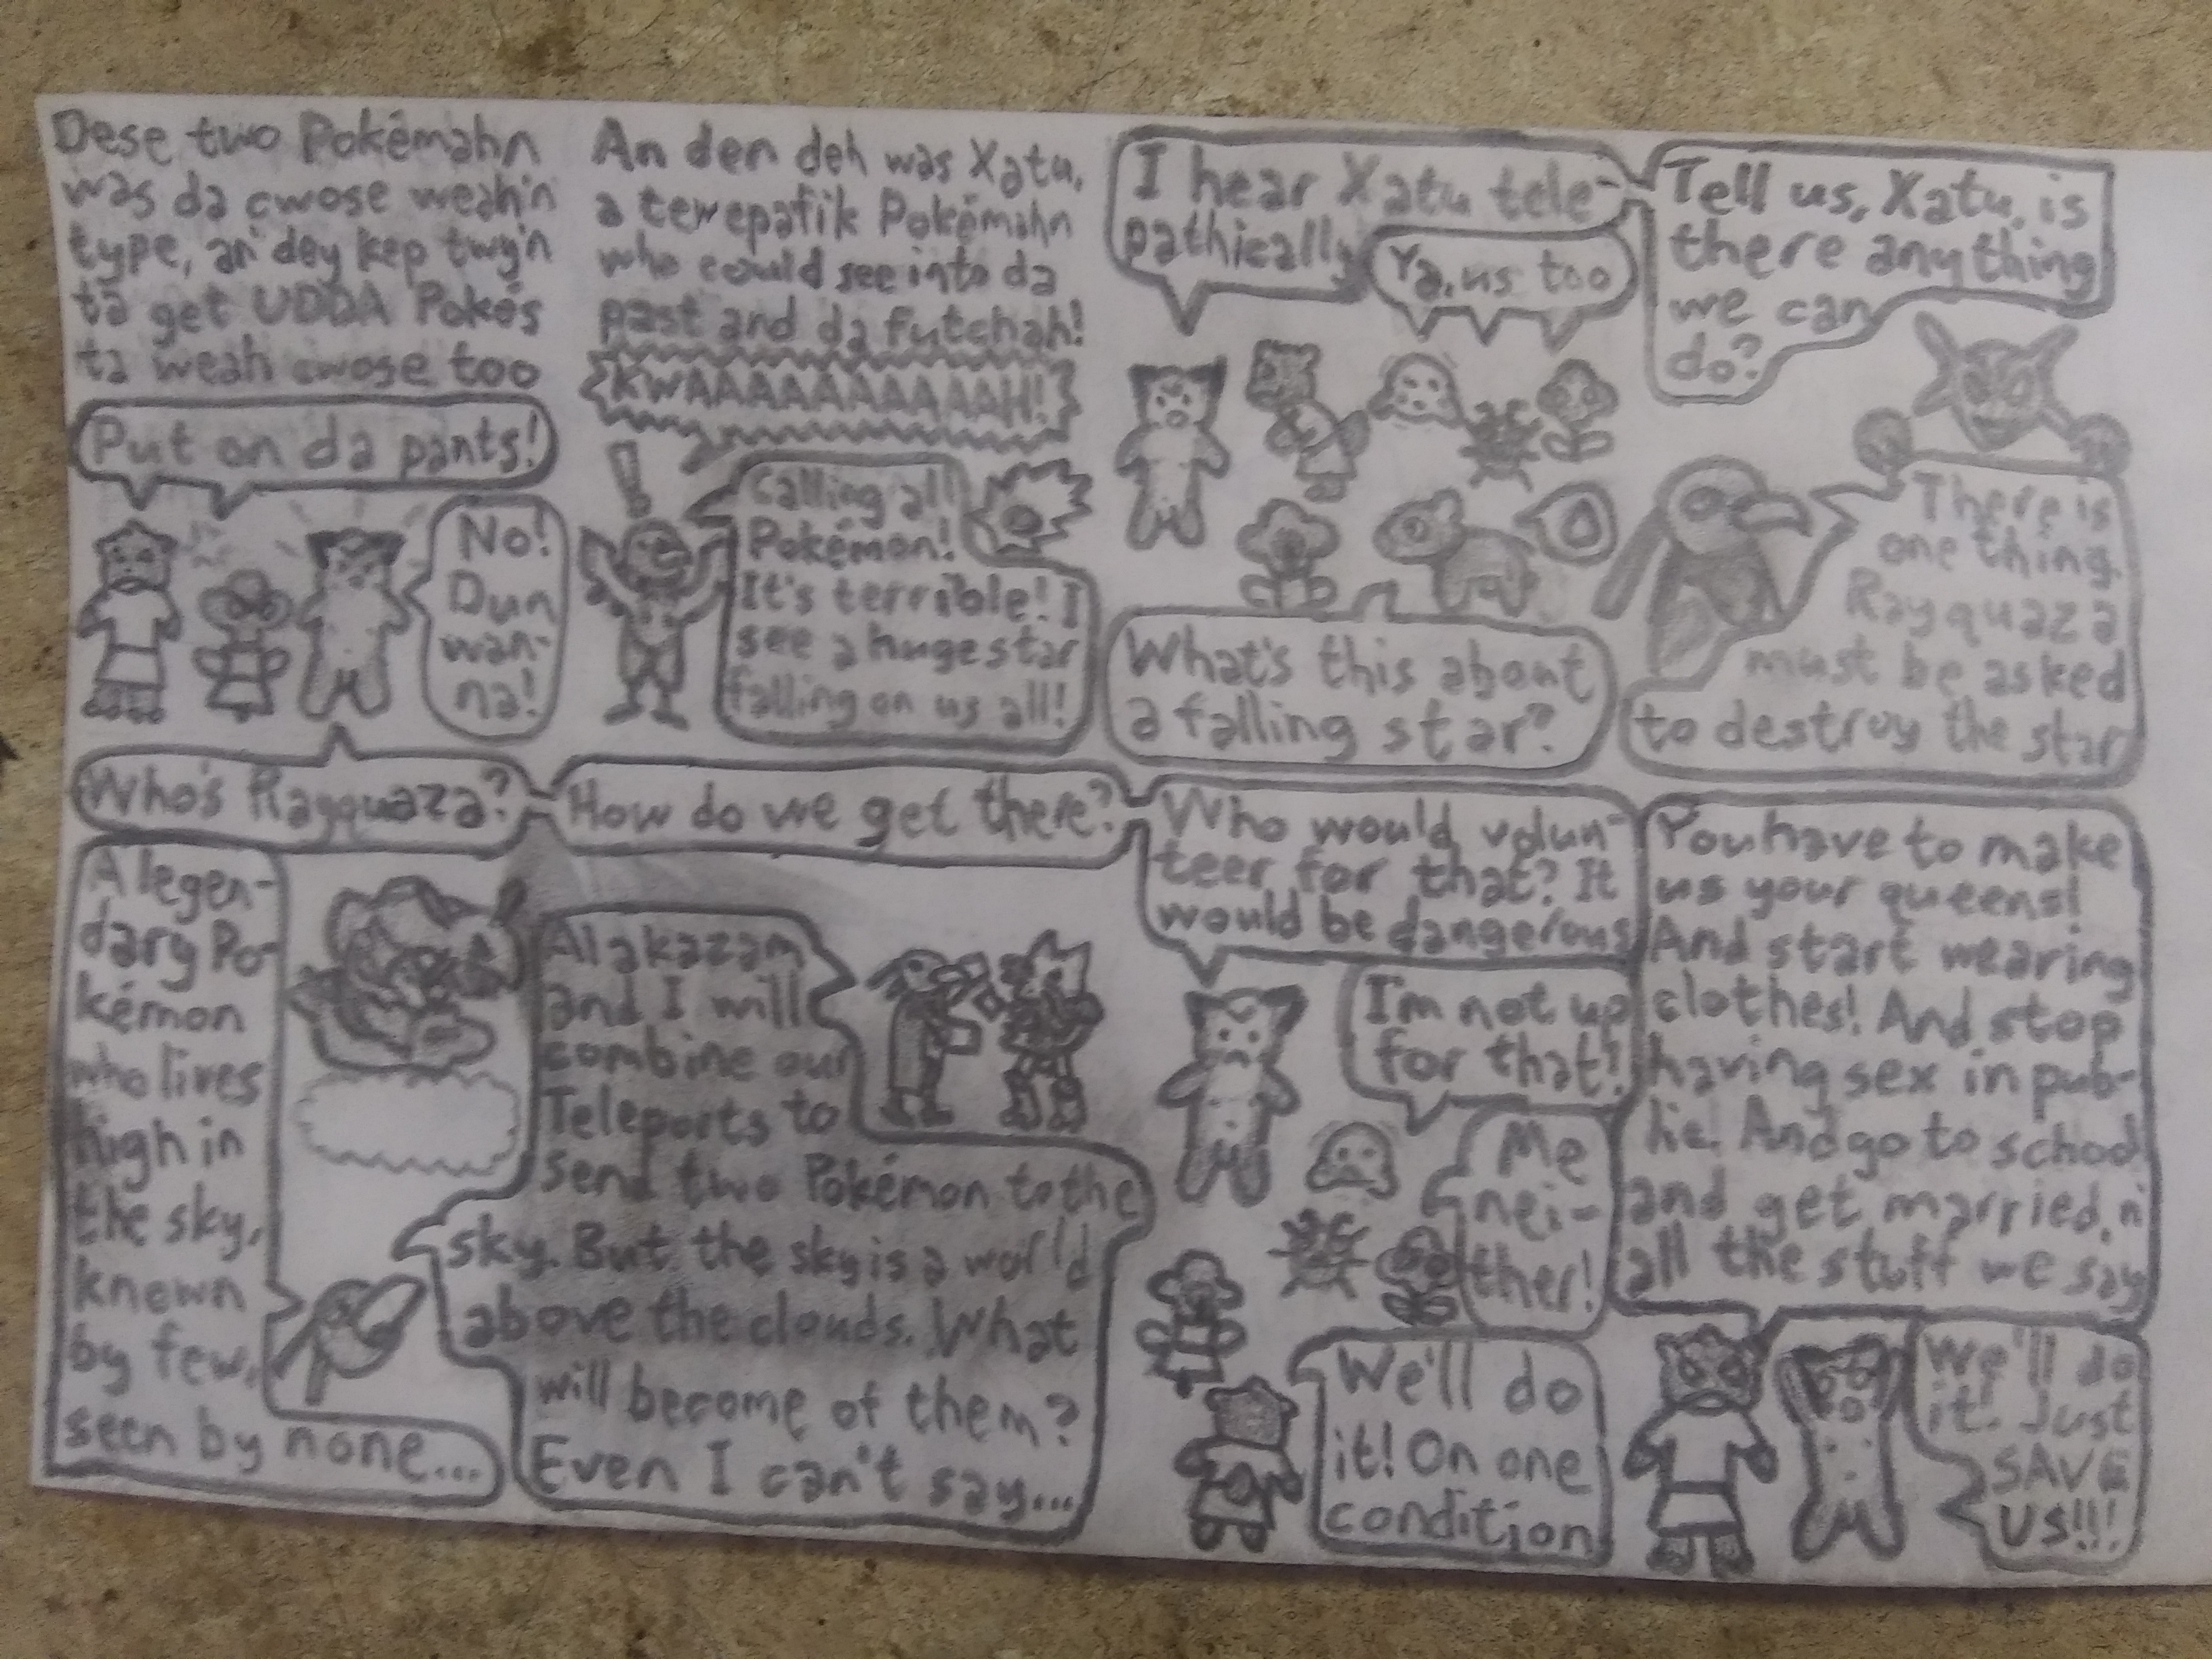 Dese two Pokémahn
was da cwose weah'n
type, an' dey kep twy'n
ta get UDDA Pokés
ta weah cwose too
Put on da pants!
No!
Dun
wan-
na!
An den deh was Xatu,
a tewepafik Pokémahn
who could see into da
past and da futchah!
KWAAAAAAAAAAAAH!
Calling all
Pokémon!
It's terrible! I
see a huge star
falling on us all!
I hear Xatu tele-
pathically
Ya, us too
What's this about
a falling star?
Tell us, Xatu, is
there anything
we can
do?
There is
one thing.
Rayquaza
must be asked
to destroy the star
Who's Rayquaza?
How do we get there?
A legen-
dary Po-
kémon
who lives
high in
the sky,
known
by few,
seen by none...
Alakazam
and I will
combine our
Teleports to
send two Pokémon to the
sky. But the sky is a world
above the clouds. What
will become of them?
Even I can't say...
Who would volun-
teer for that? It
would be dangerous
I'm not up
for that!
Me
nei-
ther!
We'll do
it! On one
condition
You have to make
us your queens!
And start wearing
clothes! And stop
having sex in pub-
lic! And go to school
and get married, n'
all the stuff we say
We'll do
it! Just
SAVE
US!!!